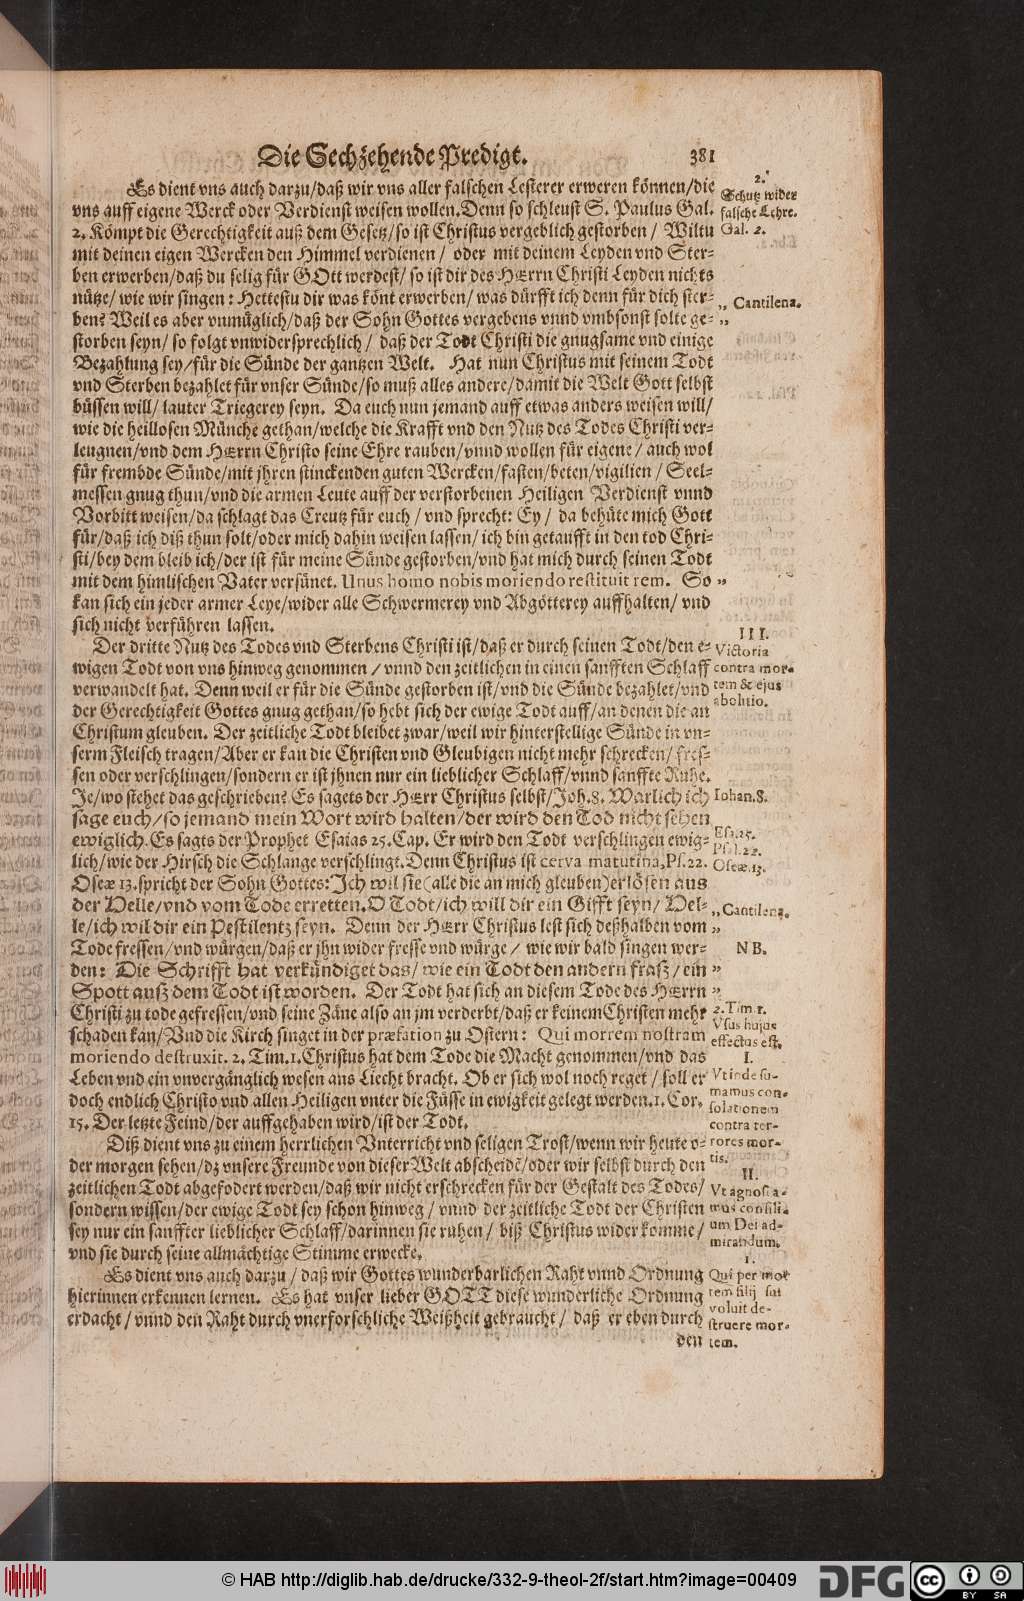 Die Sechzehende Predigt. 381
Es dient vns auch darzu/daß wir vns aller falschen Lesterer erweren können/die
vns auff eigene Werck oder Verdienst weisen wollen. Denn so schleust S. Paulus Gal.
2. Kömpt die Gerechtigkeit auß dem Gesetz/so ist Christus vergeblich gestorben/ Wiltu
mit deinen eigen Wercken den Himmel verdienen/ oder mit deinem Leyden vnd Ster-
ben erwerben/daß du selig für GOtt werdest/ so ist dir des HErrn Christi Leyden nichts
nütze/ wie wir singen: Hettestu dir was könt erwerben/ was dürfft ich denn für dich ster-
ben? Weil es aber vnmüglich/daß der Sohn Gottes vergebens vnnd vmbsonst solte ge-
storben seyn/ so folgt vnwidersprechlich/ daß der Todt Christi die gnugsame vnd einige
Bezahlung sey/für die Sünde der gantzen Welt. Hat nun Christus mit seinem Todt
vnd Sterben bezahlet für vnser Sünde/so muß alles andere/damit die Welt Gott selbst
büssen will/ lauter Triegerey seyn. Da euch nun jemand auff etwas anders weisen will/
wie die heillosen Münche gethan/welche die Krafft vnd den Nutz des Todes Christi ver-
leugnen/vnd dem HErrn Christo seine Ehre rauben/vnnd wollen für eigene/ auch wol
für frembde Sünde/mit jhren stinckenden guten Wercken/fasten/beten/vigilien/ Seel-
messen gnug thun/vnd die armen Leute auff der verstorbenen Heiligen Verdienst vnnd
Vorbitt weisen/da schlagt das Creutz für euch/ vnd sprecht: Ey/ da behüte mich Gott
für/daß ich diß thun solt/oder mich dahin weisen lassen/ ich bin getaufft in den tod Chri-
sti/bey dem bleib ich/der ist für meine Sünde gestorben/vnd hat mich durch seinen Todt
mit dem himlischen Vater versünet. Unus homo nobis moriendo restituit rem. So
kan sich ein jeder armer Leye/wider alle Schwermerey vnd Abgötterey auffhalten/ vnd
sich nicht verführen lassen.
Der dritte Nutz des Todes vnd Sterbens Christi ist/daß er durch seinen Todt/den e-
wigen Todt von vns hinweg genommen/ vnnd den zeitlichen in einen sanfften Schlaff
verwandelt hat. Denn weil er für die Sünde gestorben ist/vnd die Sünde bezahlet/vnd
der Gerechtigkeit Gottes gnug gethan/so hebt sich der ewige Todt auff/an denen die an
Christum gleuben. Der zeitliche Todt bleibet zwar/weil wir hinterstellige Sünde in vn-
serm Fleisch tragen/Aber er kan die Christen vnd Gleubigen nicht mehr schrecken/ fres-
sen oder verschlingen/sondern er ist jhnen nur ein lieblicher Schlaff/vnnd sanffte Ruhe.
Je/wo stehet das geschrieben? Es sagets der HErr Christus selbst/Joh. 8. Warlich ich
sage euch/so jemand mein Wort wird halten/der wird den Tod nicht sehen
ewiglich. Es sagts der Prophet Esaias 25. Cap. Er wird den Todt verschlingen ewig-
lich/wie der Hirsch die Schlange verschlingt. Denn Christus ist cerva matutina, Ps. 22.
Oseæ 13. spricht der Sohn Gottes: Ich wil sie (alle die an mich gleuben) erlösen aus
der Helle/vnd vom Tode erretten. O Todt/ich will dir ein Gifft seyn/ Hel-
le/ich wil dir ein Pestilentz seyn. Denn der HErr Christus lest sich deßhalben vom
Tode fressen/vnd würgen/daß er jhn wider fresse vnd würge/ wie wir bald singen wer-
den: Die Schrifft hat verkündiget das/ wie ein Todt den andern fraß/ ein
Spott auß dem Todt ist worden. Der Todt hat sich an diesem Tode des HErrn
Christi zu tode gefressen/vnd seine Zäne also an jm verderbt/daß er keinem Christen mehr
schaden kan/Vnd die Kirch singet in der præfation zu Ostern: Qui mortem nostram
moriendo destruxit. 2. Tim. 1. Christus hat dem Tode die Macht genommen/vnd das
Leben vnd ein vnvergänglich wesen ans Liecht bracht. Ob er sich wol noch reget/ soll er
doch endlich Christo vnd allen Heiligen vnter die Füsse in ewigkeit gelegt werden. 1. Cor.
15. Der letzte Feind/der auffgehaben wird/ist der Todt.
Diß dient vns zu einem herrlichen Vnterricht vnd seligen Trost/wenn wir heute o-
der morgen sehen/dz vnsere Freunde von dieser Welt abscheidē/oder wir selbst durch den
zeitlichen Todt abgefodert werden/daß wir nicht erschrecken für der Gestalt des Todes/
sondern wissen/der ewige Todt sey schon hinweg/ vnnd der zeitliche Todt der Christen
sey nur ein sanffter lieblicher Schlaff/darinnen sie ruhen/ biß Christus wider komme/
vnd sie durch seine allmächtige Stimme erwecke.
Es dient vns auch darzu/ daß wir Gottes wunderbarlichen Raht vnnd Ordnung
hierinnen erkennen lernen. Es hat vnser lieber GOTT diese wunderliche Ordnung
erdacht/ vnnd den Raht durch vnerforschliche Weißheit gebraucht/ daß er eben durch
den
2.
Schutz wider
falsche Lehre.
Gal. 2.
„ Cantilena.
„
„
III.
Victoria
contra mor-
tem & ejus
abolitio.
Iohan. 8.
Esa. 25.
Psal. 22.
Oseæ. 13.
„ Cantilena.
„
NB.
„
„
2. Tim. 1.
Vsus hujus
effectus est.
I.
Vt inde su-
mamus con-
solationem
contra ter-
rores mor-
tis.
II.
Vt agnosca-
mus consili-
um Dei ad-
mirandum.
1.
Qui per mor
tem filij sui
voluit de-
struere mor-
tem.
© HAB http://diglib.hab.de/drucke/332-9-theol-2f/start.htm?image=00409
DFG
cc
BY SA